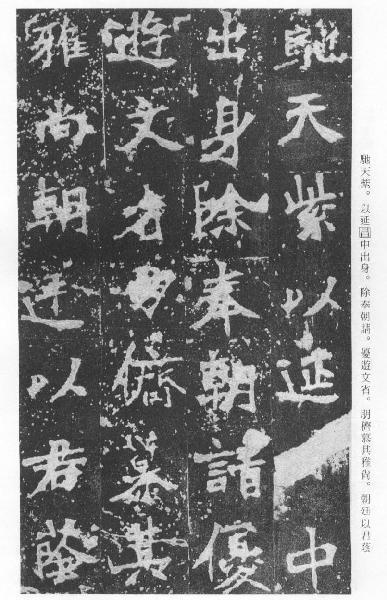 馳天紫以延中
出身除奉朝請優
遊文省朋儕慕其
雅尚朝廷以君蔭
馳天紫。以延昌中出身。除奉朝請。優遊文省。朋儕慕其雅尚。朝廷以君蔭